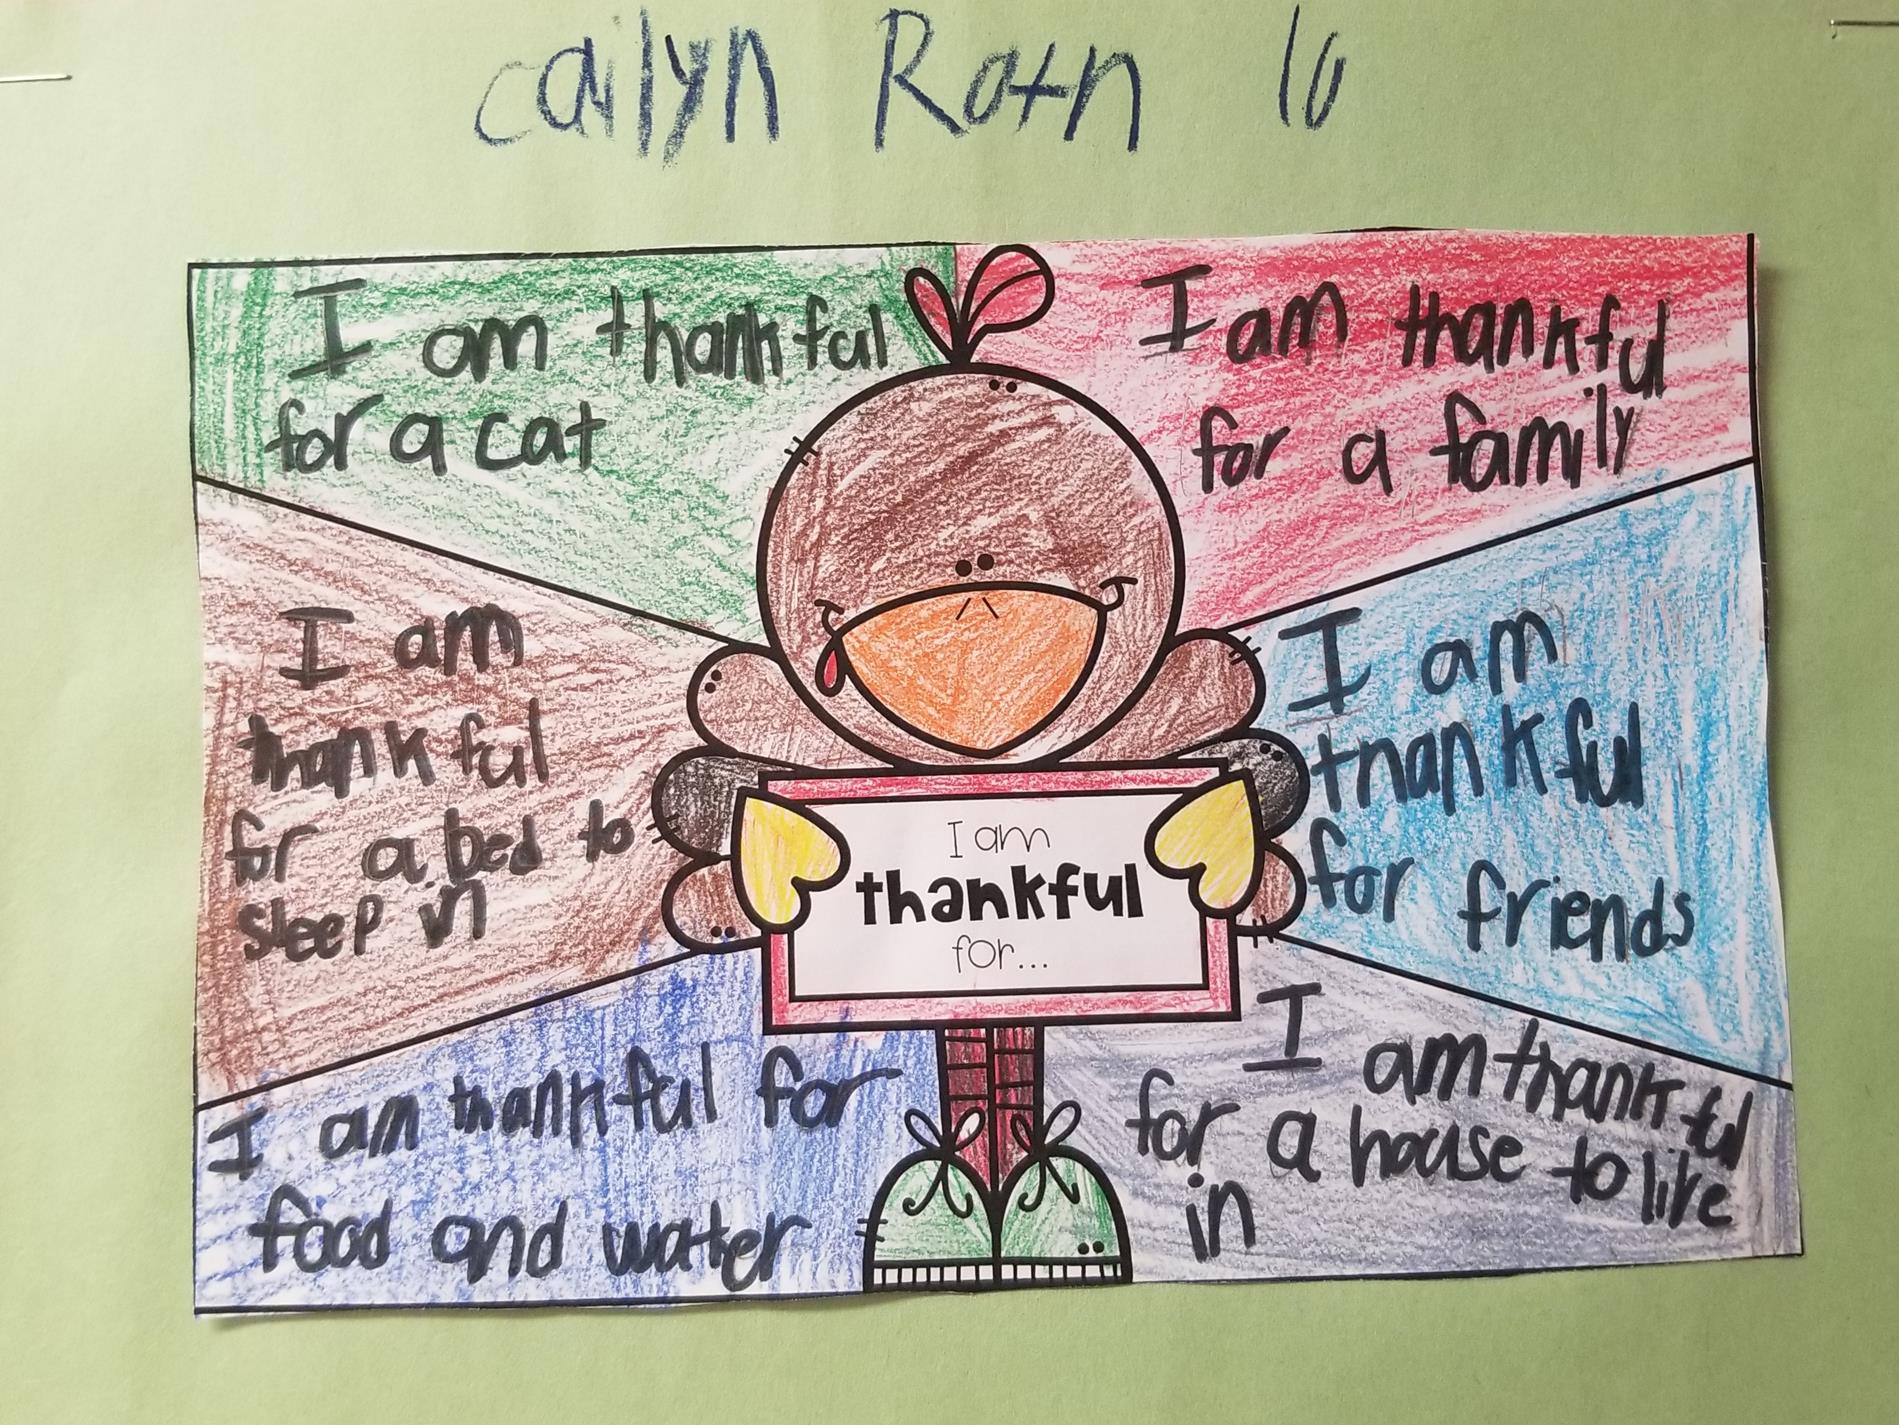 Cailyn Roth 10
I am thankful
for a cat
I am thankful
for a family
I am
thankful
for a bed to
sleep in
I am
thankful
for friends
I am
thankful
for...
I am thankful for
food and water
I am thankful
for a house to live
in